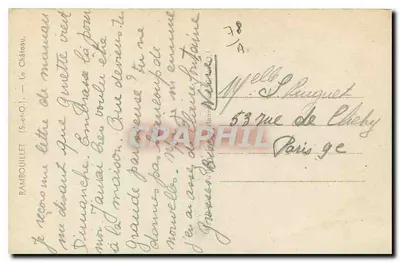 RAMBOUILLET (S.-et-O.) — Le Château.
je reçois une lettre de maman
me disant que Ginette vient
Dimanche. Embrasse la pour
moi. J'aurai bien voulu être
à la maison. Que deviens-tu
grande paresseuse? tu ne
donnes pas beaucoup de
nouvelles.
j'en ai assez de
Grosses Bises
Pierre
78
A.
Melle S.
53 rue de Clichy
Paris 9e
CARTOPHARAMA